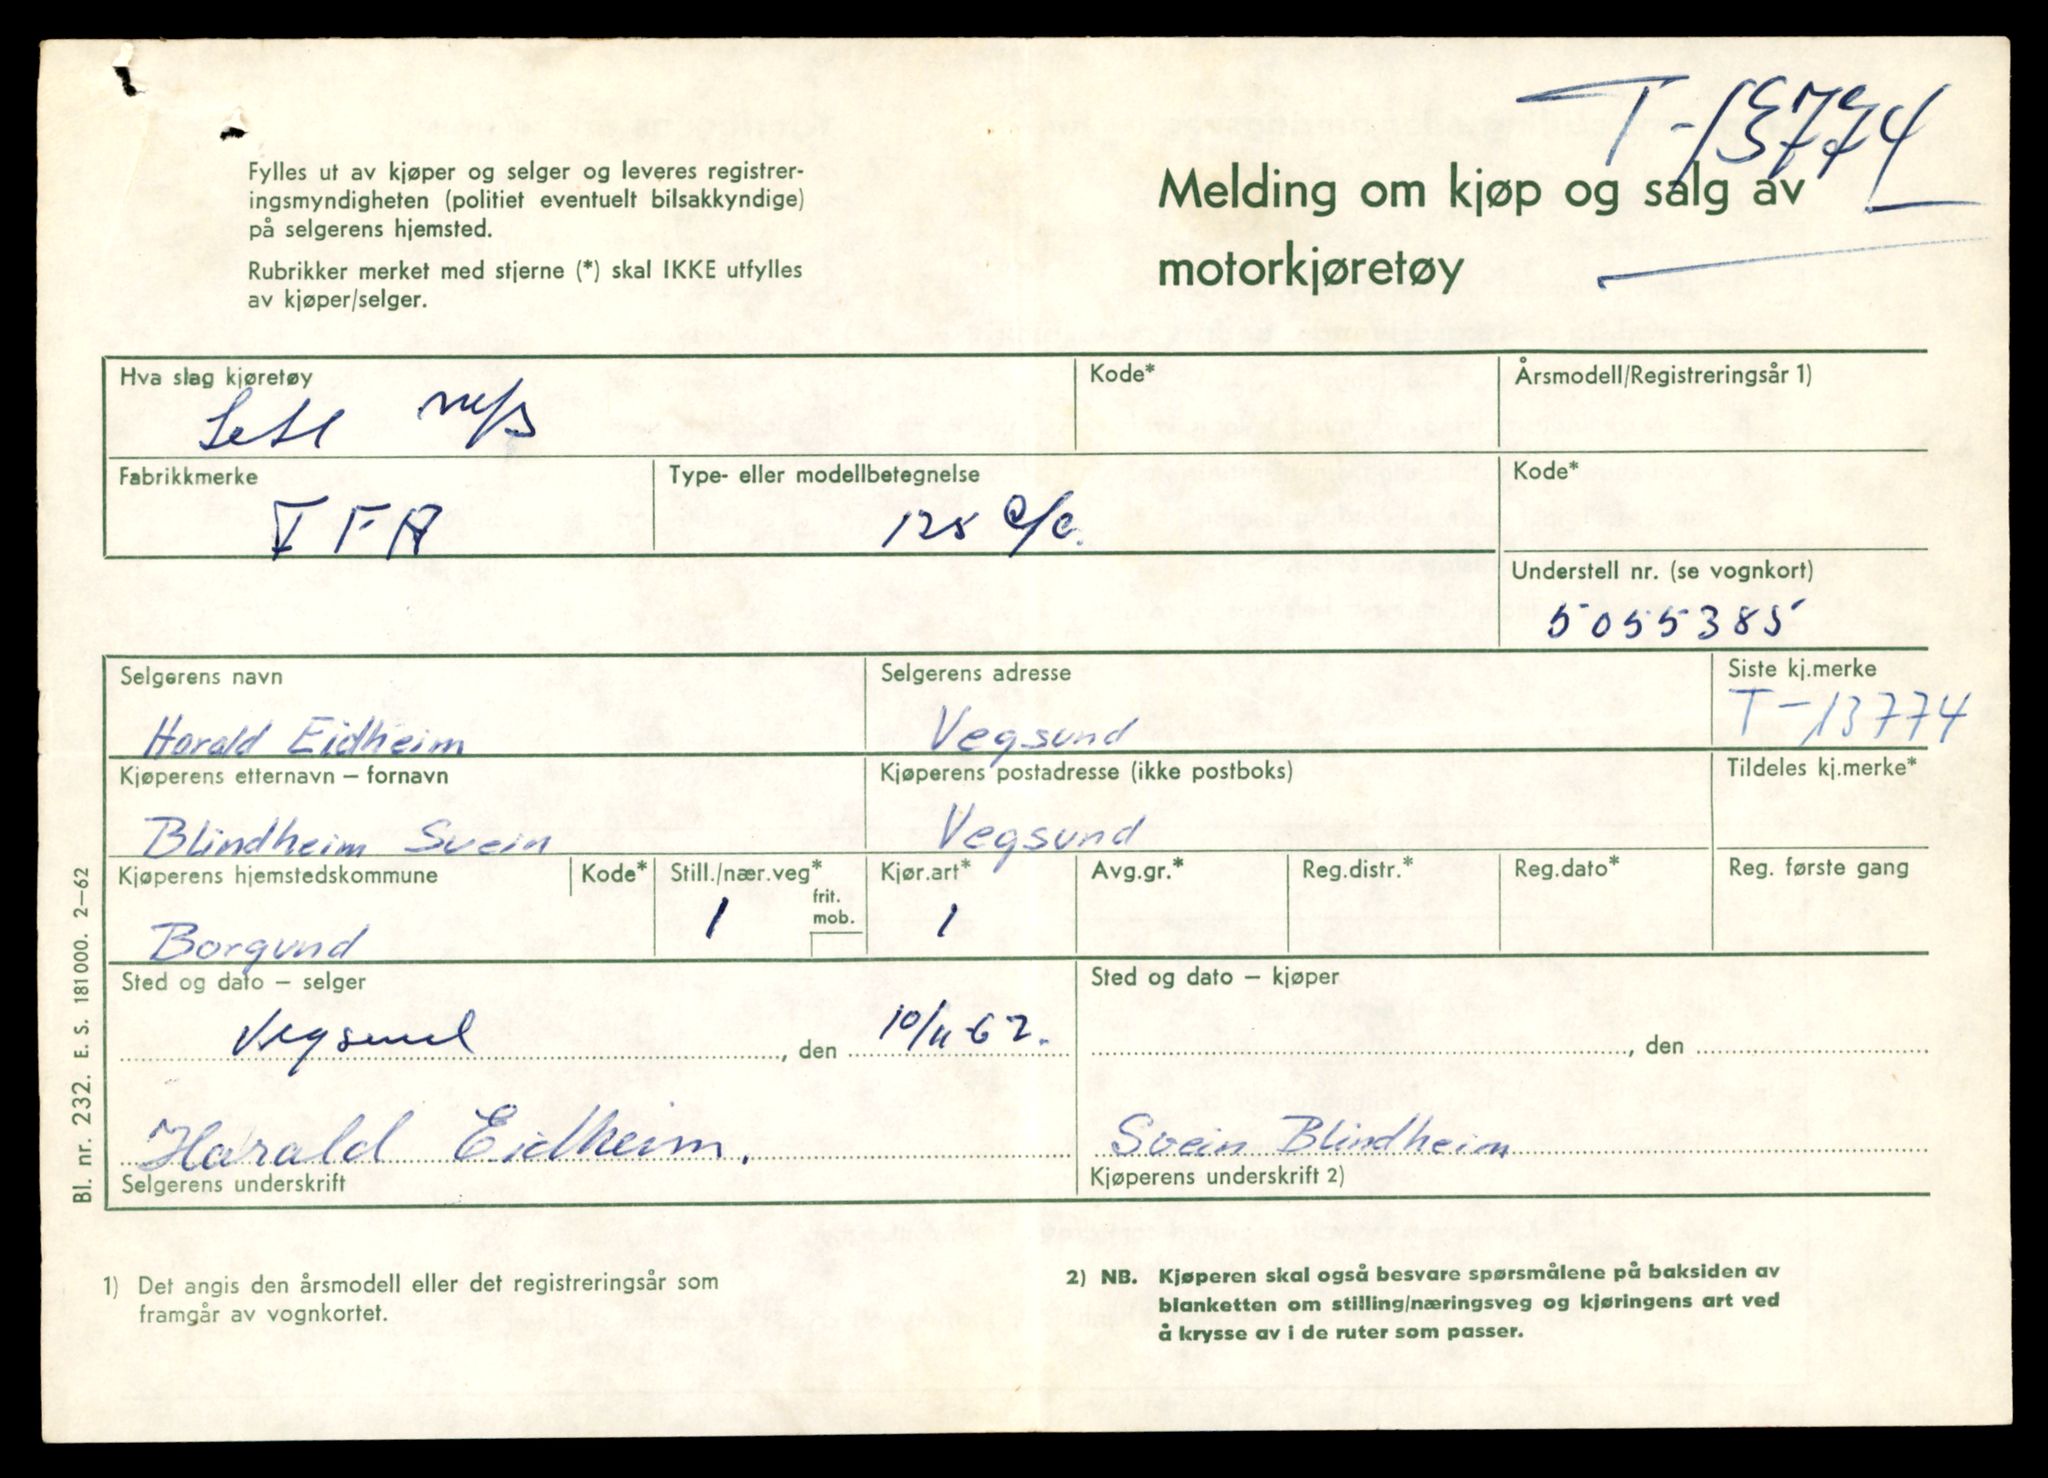 T-13774
Fylles ut av kjøper og selger og leveres registrer-
ingsmyndigheten (politiet eventuelt bilsakkyndige)
på selgerens hjemsted.
Rubrikker merket med stjerne (*) skal IKKE utfylles
av kjøper/selger.
Melding om kjøp og salg av
motorkjøretøy
Hva slag kjøretøy
Kode*
Årsmodell/Registreringsår 1)
Lett
Fabrikkmerke
Type- eller modellbetegnelse
Kode*
125 c/c.
Understell nr. (se vognkort)
5055385
Selgerens navn
Selgerens adresse
Siste kj.merke
Harald Eidheim
Vegsund
T-13774
Kjøperens etternavn – fornavn
Kjøperens postadresse (ikke postboks)
Tildeles kj.merke*
Blindheim Svein
Vegsund
Kjøperens hjemstedskommune
Kode*
Still./nær.veg*
frit.
mob.
Kjør.art*
Avg.gr.*
Reg.distr.*
Reg.dato*
Reg. første gang
Borgund
1
1
Sted og dato – selger
Sted og dato – kjøper
Vegsund, den 10/11-62.
, den
Harald Eidheim.
Svein Blindheim
Selgerens underskrift
Kjøperens underskrift 2)
1) Det angis den årsmodell eller det registreringsår som
framgår av vognkortet.
2) NB. Kjøperen skal også besvare spørsmålene på baksiden av
blanketten om stilling/næringsveg og kjøringens art ved
å krysse av i de ruter som passer.
Bl. nr. 232. E. S. 181000. 2–62